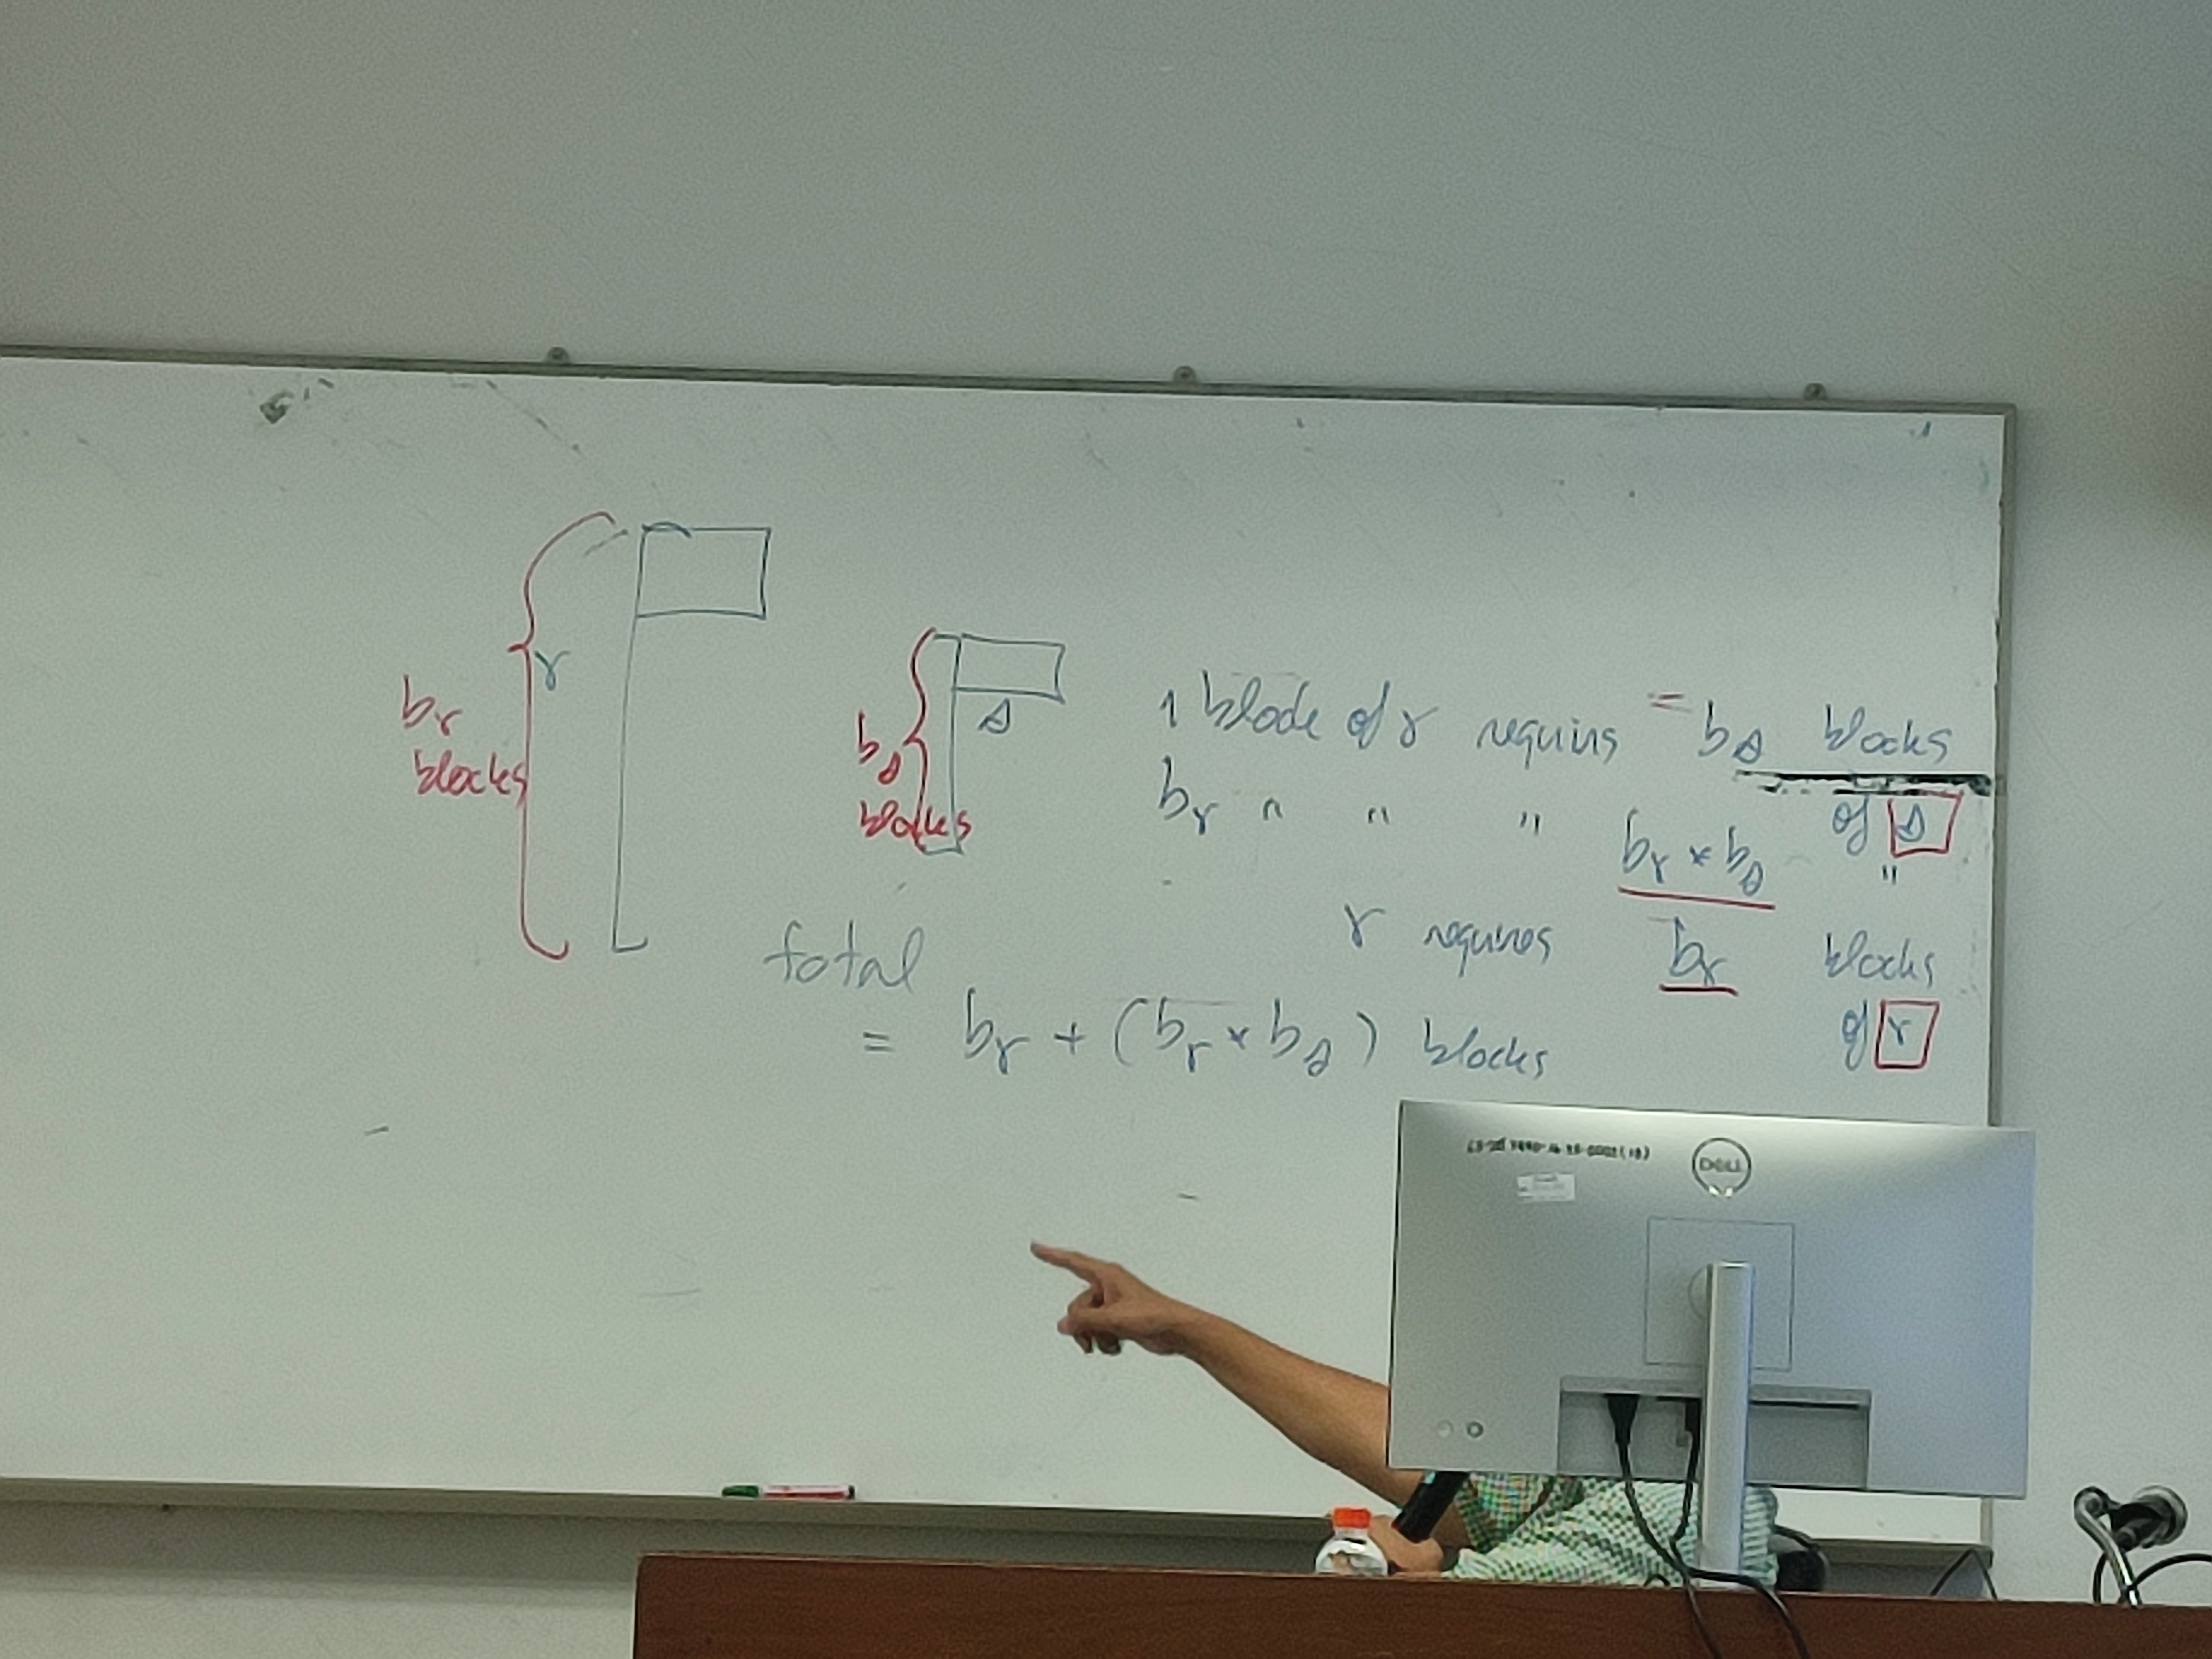 r
b_r
blocks
s
b_s
blocks
1 block of r requires = b_s blocks
of s
b_r " " " b_r × b_s "
r requires b_r blocks
of r
total
= b_r + (b_r × b_s) blocks
DELL